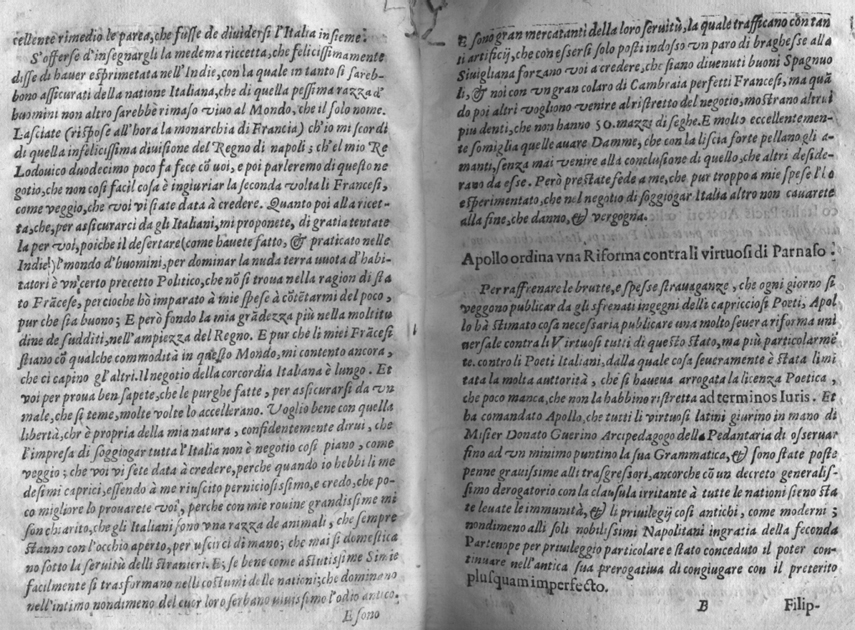 cellente rimedio le parea, che fusse de dividersi l'Italia insieme.
S'offerse d'insegnargli la medema riccetta, che felicissimamente
disse di hauer esprimetata nell'Indie, con la quale in tanto si sareb-
bono assicurati della natione Italiana, che di quella pessima razza d'
huomini non altro sarebbe rimaso viuo al Mondo, che il solo nome.
Lasciate (rispose all'hora la monarchia di Francia) ch'io mi scordi
di quella infelicissima diuisione del Regno di napoli; ch'el mio Re
Lodouico duodecimo poco fa fece cõ uoi, e poi parleremo di questo ne
gotio, che non cosi facil cosa è ingiuriar la seconda volta li Francesi,
come veggio, che voi vi siate data à credere. Quanto poi alla ricet-
ta, che, per assicurarci da gli Italiani, mi proponete, di gratia tentate
la per voi, poiche il desertare (come hauete fatto, & praticato nelle
Indie) l'mondo d'huomini, per dominar la nuda terra uuota d'habi-
tatori è vn certo precetto Politico, che nõ si troua nella ragion di sta
to Frãcese, percioche hò imparato à mie spese à cõtẽtarmi del poco,
pur che sia buono; E però fondo la mia grãdezza più nella moltitu
dine de sudditi, nell'ampiezza del Regno. E pur che li miei Frãcesi
stiano cõ qualche commodità in questo Mondo, mi contento ancora,
che ci capino gl'altri. Il negotio della corcordia Italiana è lungo. Et
voi per proua ben sapete, che le purghe fatte, per assicurarsi da vn
male, che si teme, molte volte lo accellerano. Voglio bene con quella
libertà, chr è propria della mia natura, confidentemente dirui, che
l'impresa di soggiogar tutta l'Italia non è negotio cosi piano, come
veggio; che voi vi sete data à credere, perche quando io hebbi li me
desimi caprici, essendo à me riuscito perniciosissimo, e credo, che po-
co migliore lo prouarete voi, perche con mie rouine grandissime mi
son chiarito, che gli Italiani sono vna razza de animali, che sempre
stanno con l'occhio aperto, per uscirci di mano; che mai si domestica
no sotto la seruitù delli stranieri. E, se bene come astutissime Simie
facilmente si trasformano nelli costumi delle nationi; che dominano
nell'intimo nondimeno del cuor loro serbano viuissimo l'odio antico.
E sono
E sono gran mercatanti della loro seruitù, la quale trafficano con tan
ti artificij, che con essersi solo posti indosso un paro di braghesse alla
Siuigliana forzano voi a credere, che siano diuenuti buoni Spagnuo
li, & noi con vn gran colaro di Cambraia perfetti Francesi, ma quã
do poi altri vogliono venire al ristretto del negotio, mostrano altrui
piu denti, che non hanno 50. mazzi di seghe. E molto eccellentemen-
te somiglia quelle auare Damme, che con la liscia forte pellano gli a-
manti, senza mai venire alla conclusione di quello, che altri deside-
rano da esse. Però prestate fede a me, che pur troppo a mie spese l'ho
esperimentato, che nel negotio di soggiogar Italia altro non cauarete
alla fine, che danno, & vergogna.
Apollo ordina vna Riforma contra li virtuosi di Parnaso.
Per raffrenare le brutte, e spesse strauaganze, che ogni giorno si
veggono publicar da gli sfrenati ingegni delli capricciosi Poeti, Apol
lo hà stimato cosa necessaria publicare una molto seuera riforma uni
uersale contra li Virtuosi tutti di questo stato, ma più particolarmẽ
te. contro li Poeti Italiani, dalla quale cosa seueramente è stata limi
tata la molta auttorità, che si haueua arrogata la licenza Poetica,
che poco manca, che non la habbino ristretta ad terminos Iuris. Et
ha comandato Apollo, che tutti li virtuosi latini giurino in mano di
Misier Donato Guerino Arcipedagogo della Pedantaria di osseruar
fino ad vn minimo puntino la sua Grammatica, & sono state poste
penne grauissime alli trasgressori, ancorche cõ un decreto generalis-
simo derogatorio con la clausula irritante à tutte le nationi sieno sta
te leuate le immunità, & li priuilegij cosi antichi, come moderni;
nondimeno alli soli nobilissimi Napolitani in gratia della feconda
Partenope per priuileggio particolare e stato conceduto il poter con-
tinuare nell'antica sua prerogatiua di congiugare con il preterito
plusquam imperfecto.
B Filip-